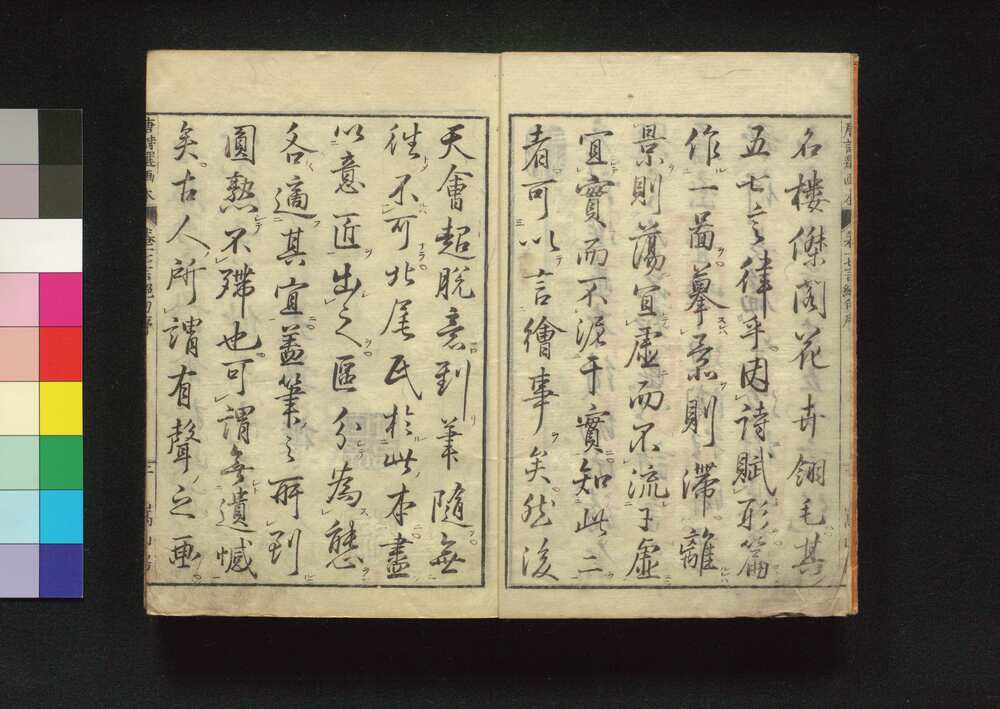 名樓傑閣花卉翎毛其
五七言律乎因詩賦形篇
作一啚摹景則滯離
景則蕩宜虛而不流于虛
宜實而不泥于實知此二
者可以言繪事矣然後
天會超脫意到筆隨無
徃不可北尾氏於此本盡
以意匠出之區分為態
各適其宜蓋筆之所到
圓熟不殢也可謂無遺憾
矣古人所謂有聲之画
唐詩選画本